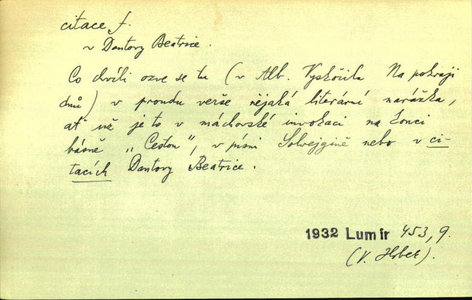 citace f.
v Dantovy Beatrice.
Co chvíli ozve se tu (v Alb. Vyskočila Na pokraji
dnů) v proudu verše nějaká literární narážka,
ať už je to v máchovské invokaci na konci
básně „Cestou", v písni Solvejgině nebo v ci-
tacích Dantovy Beatrice.
1932 Lumír 453, 9.